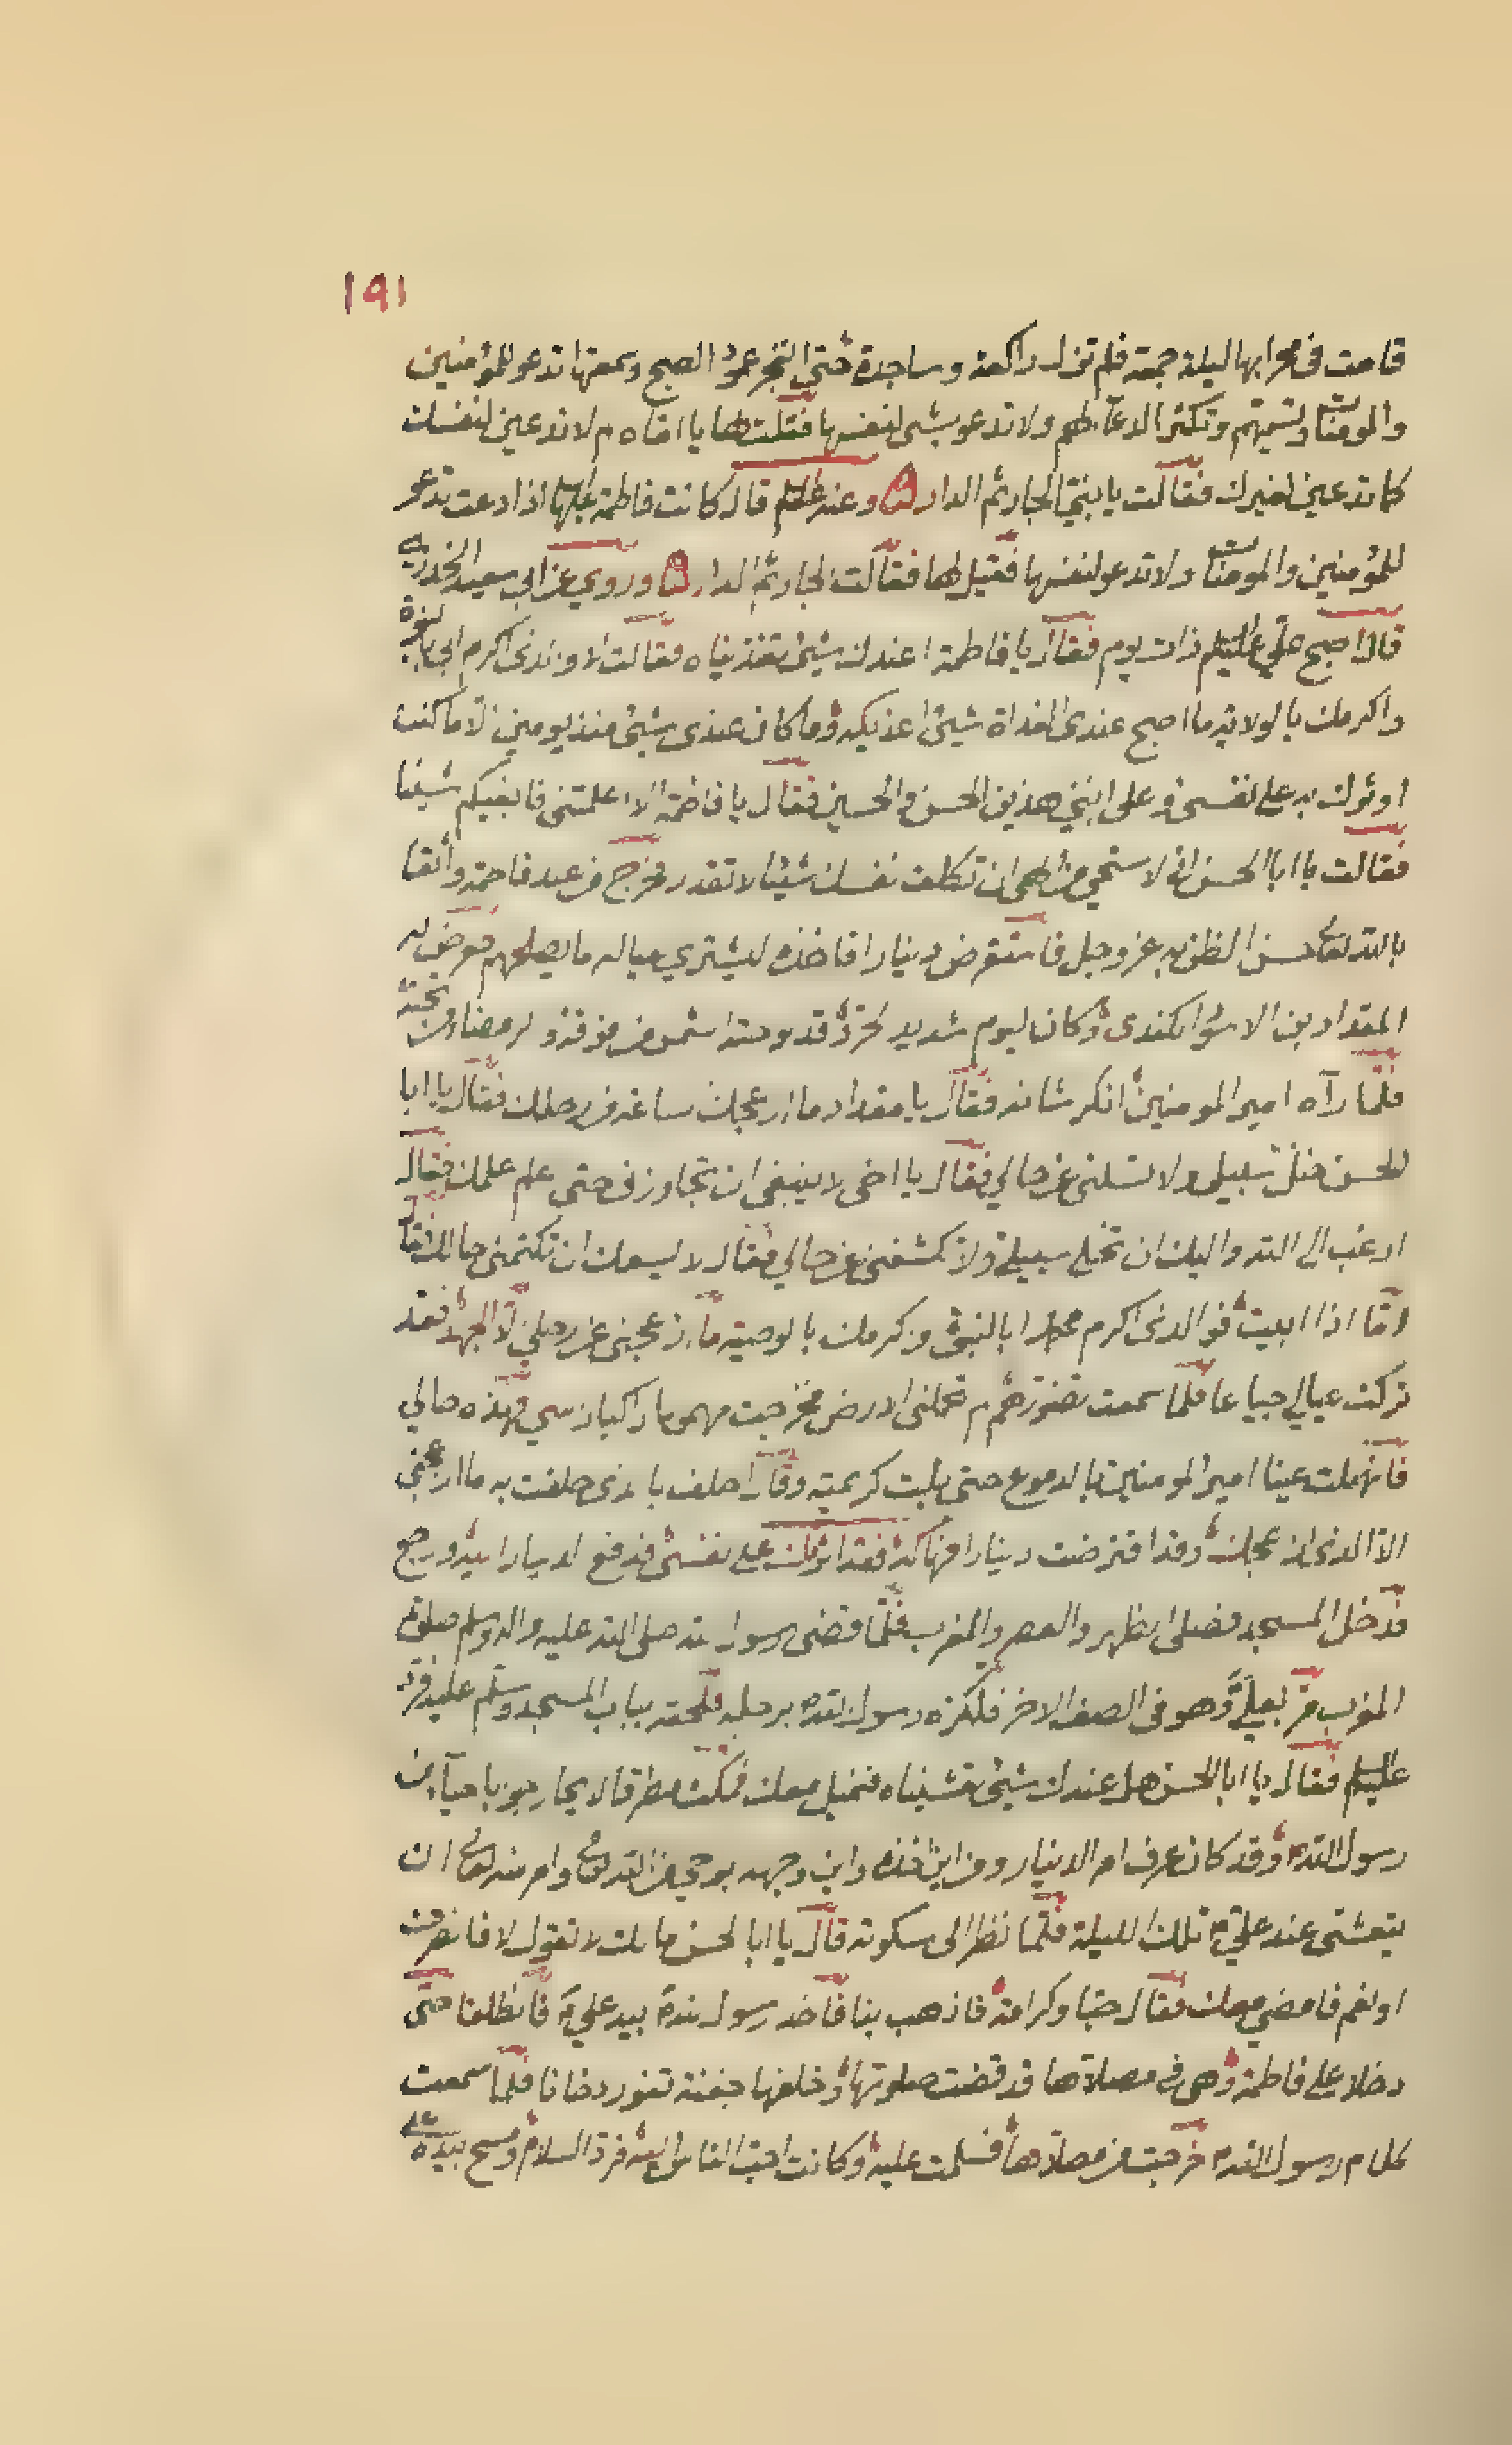 ١٩١
قامت في محرابها ليلة جمعة فلم تزل راكعة وساجدة حتى انفجر عمود الصبح وسمعتها تدعو للمؤمنين
والمومنات وتسميهم وتكثر الدعآء لهم ولا تدعو بشئ لنفسها فقلت لها يا اماه لم لا تدعين لنفسك
كما تدعين لغيرك فقالت يا بني الجار ثم الدار وعنه عليه السلم قال كانت فاطمة عليها اذا دعت تدعو
للمؤمنين والمومنات ولا تدعو لنفسها فقيل لها فقالت الجار ثم الدار وروي عن ابي سعيد الخدري
قال اصبح علي عليه السلم ذات يوم فقال يا فاطمة اعندك شيئ تغذيناه فقالت لا والذي اكرم ابي بالنبوة
واكرمك بالولاية ما اصبح عندي الغداة شيئ اغذيكه وما كان عندي شيئ منذ يومين الا ما كنت
اوثرك به على نفسي وعلى ابني هذين الحسن والحسين فقال يا فاطمة الا اعلمتني فابغيكم شيئا
فقالت يا ابا الحسن اني لاستحيي من الهي ان تكلف نفسك شيئا لا تقدر فخرج من عند فاطمة واثقا
بالله تعالى حسن الظن به عز وجل فاستقرض دينارا فاخذه ليشتري عياله ما يصلحهم فعرض له
المقداد بن الاسود الكندي وكان ليوم شديد لحر وقد لوحته الشمس من فوقه ولرمضاء من تحته
فلما رآه امير المومنين انكر شانه فقال يا مقداد ما ازعجك ساعة من رحلك فقال يا ابا
الحسن خل سبيلي ولا تسلني عن حالي فقال يا اخي لا ينبغي ان تجاوزني حتى علم علمك فقال
ارغب الى الله واليك ان تخلي سبيلي ولا تكشفني عن حالي فقال لا يسعك ان تكتمني حالك فقال
اما اذا ابيت فوالذي اكرم محمدا بالنبوة وكرمك بالوصية ما ازعجني عن رحلي الا الجهد فقد
تركت عيالي جياعا فلما سمعت تضورهم لم تحملني الارض فخرجت مهموما راكبا رسي فهذه حالي
فانهملت عينا امير المومنين بالدموع حتى بلت كريمته وقال احلف بالذي حلفت به ما ازعجني
الا الذي ازعجك وقد اقترضت دينارا فهاكه فقد اثرتك على نفسي فدفع الدينار اليه ورجع
فدخل المسجد فصلى الظهر والعصر والمغرب فلما قضى رسول الله صلى الله عليه واله وسلم صلوة
المغرب مر بعلي وهو في الصف الاخر فلكزه رسول الله برجله فلحقه بباب المسجد وسلم عليه فرد
عليه السلم فقال يا ابا الحسن هل عندك شيئ تعشيناه فنميل معك فمكث مطرقا لا يحار جوابا حيآء من
رسول الله وقد كان عرف امر الدينار ومن اين اخذه واين وجهه بوحي من الله تعالى وامر منه تعالى ان
يتعشى عند علي تلك الليلة فلما نظر الى سكوته قال يا ابا الحسن ما لك لا تقول لا فانصرف
او نعم فامضي معك فقال حبا وكرامة فاذهب بنا فاخذ رسول الله بيد علي فانطلقا حتى
دخلا على فاطمة وهي في مصلاها قد قضت صلوتها وخلفها جفنة تفور دخانا فلما سمعت
كلام رسول الله خرجت من مصلاها فسلمت عليه وكانت احب الناس اليه فرد السلام ومسح بيده على